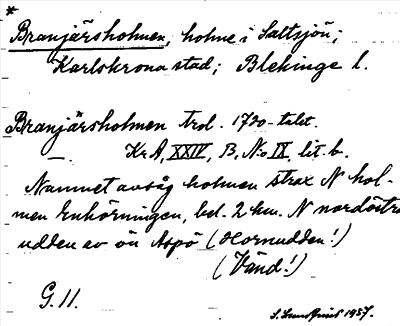 *
Branjärsholmen, holme i Saltsjön;
Karlskrona stad; Blekinge l.
Branjärsholmen trol. 1730-talet.
— Kr A, XXIV, B, No IX, lit. b.
Namnet avsåg holmen strax N hol-
men Enhörningen, bel. 2 km. N nordöstra
udden av ön Aspö (Hornudden!)
(Vänd!)
G. 11.
1937.